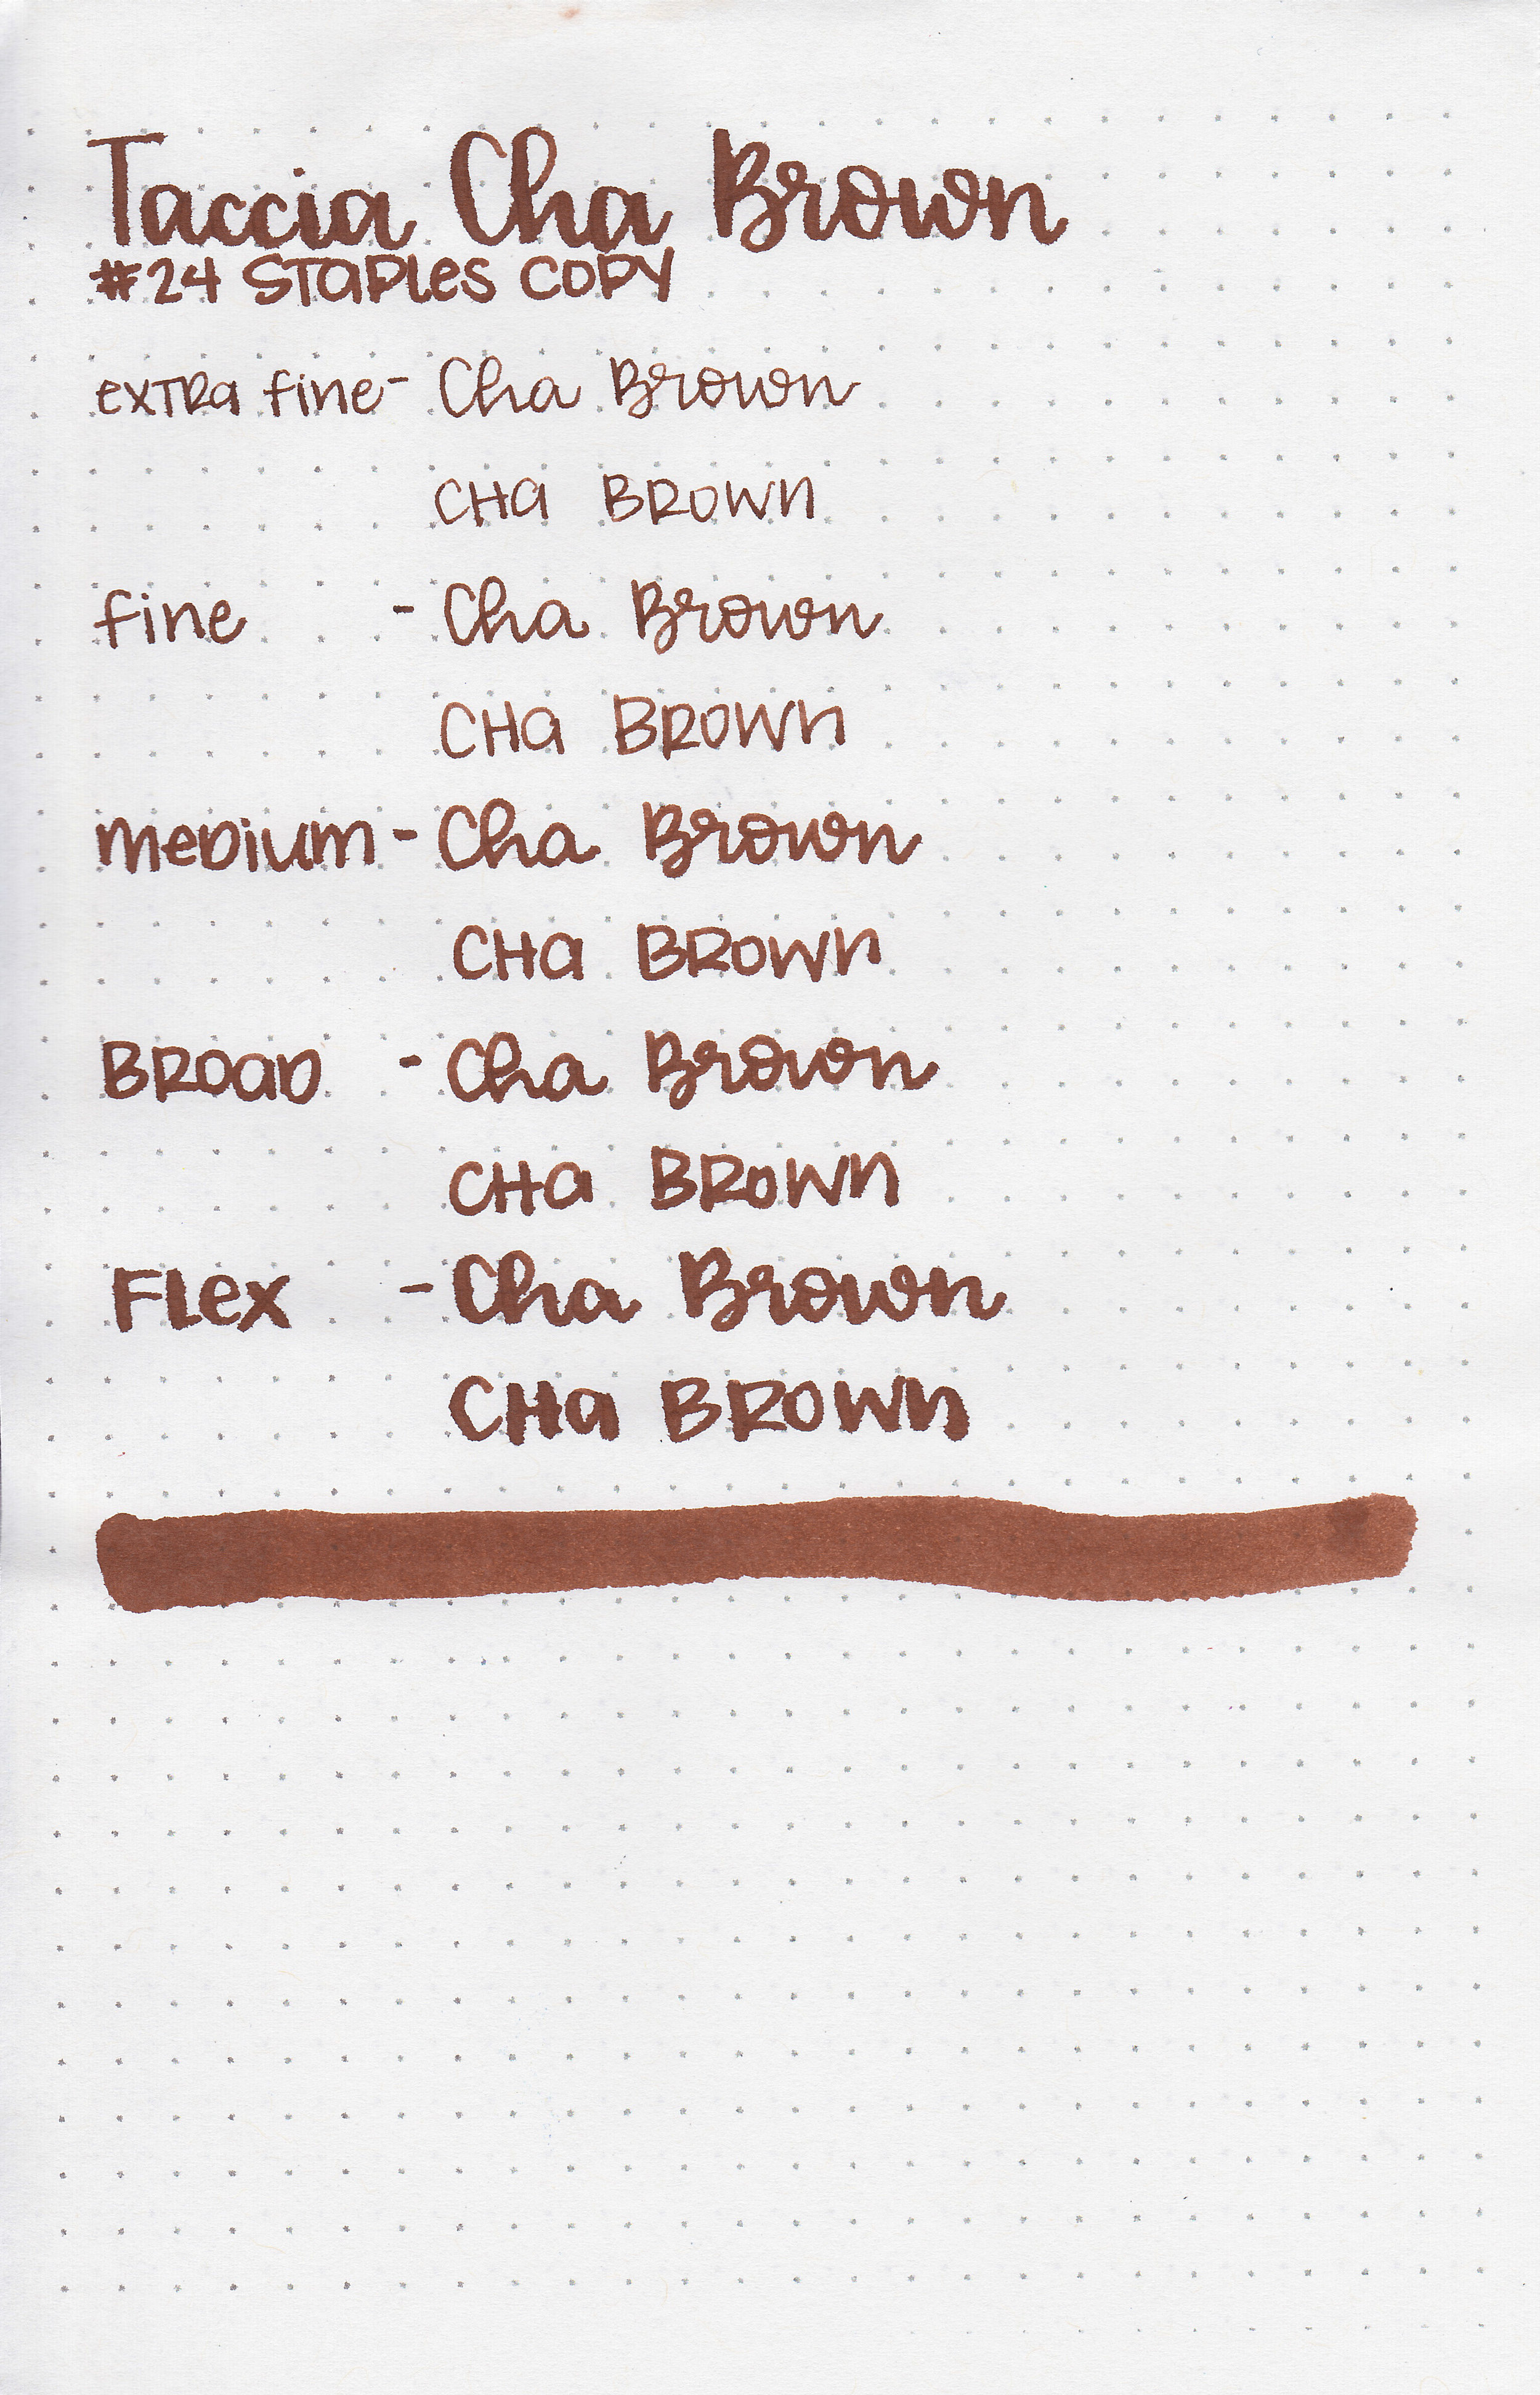 Taccia Cha Brown
#24 STaPLes COPY
exTRa fine - Cha Brown
CHa BROWn
fine - Cha Brown
CHa BROWn
meDium - Cha Brown
CHa BROWn
BROaD - Cha Brown
CHa BROWn
FLex - Cha Brown
CHa BROWn